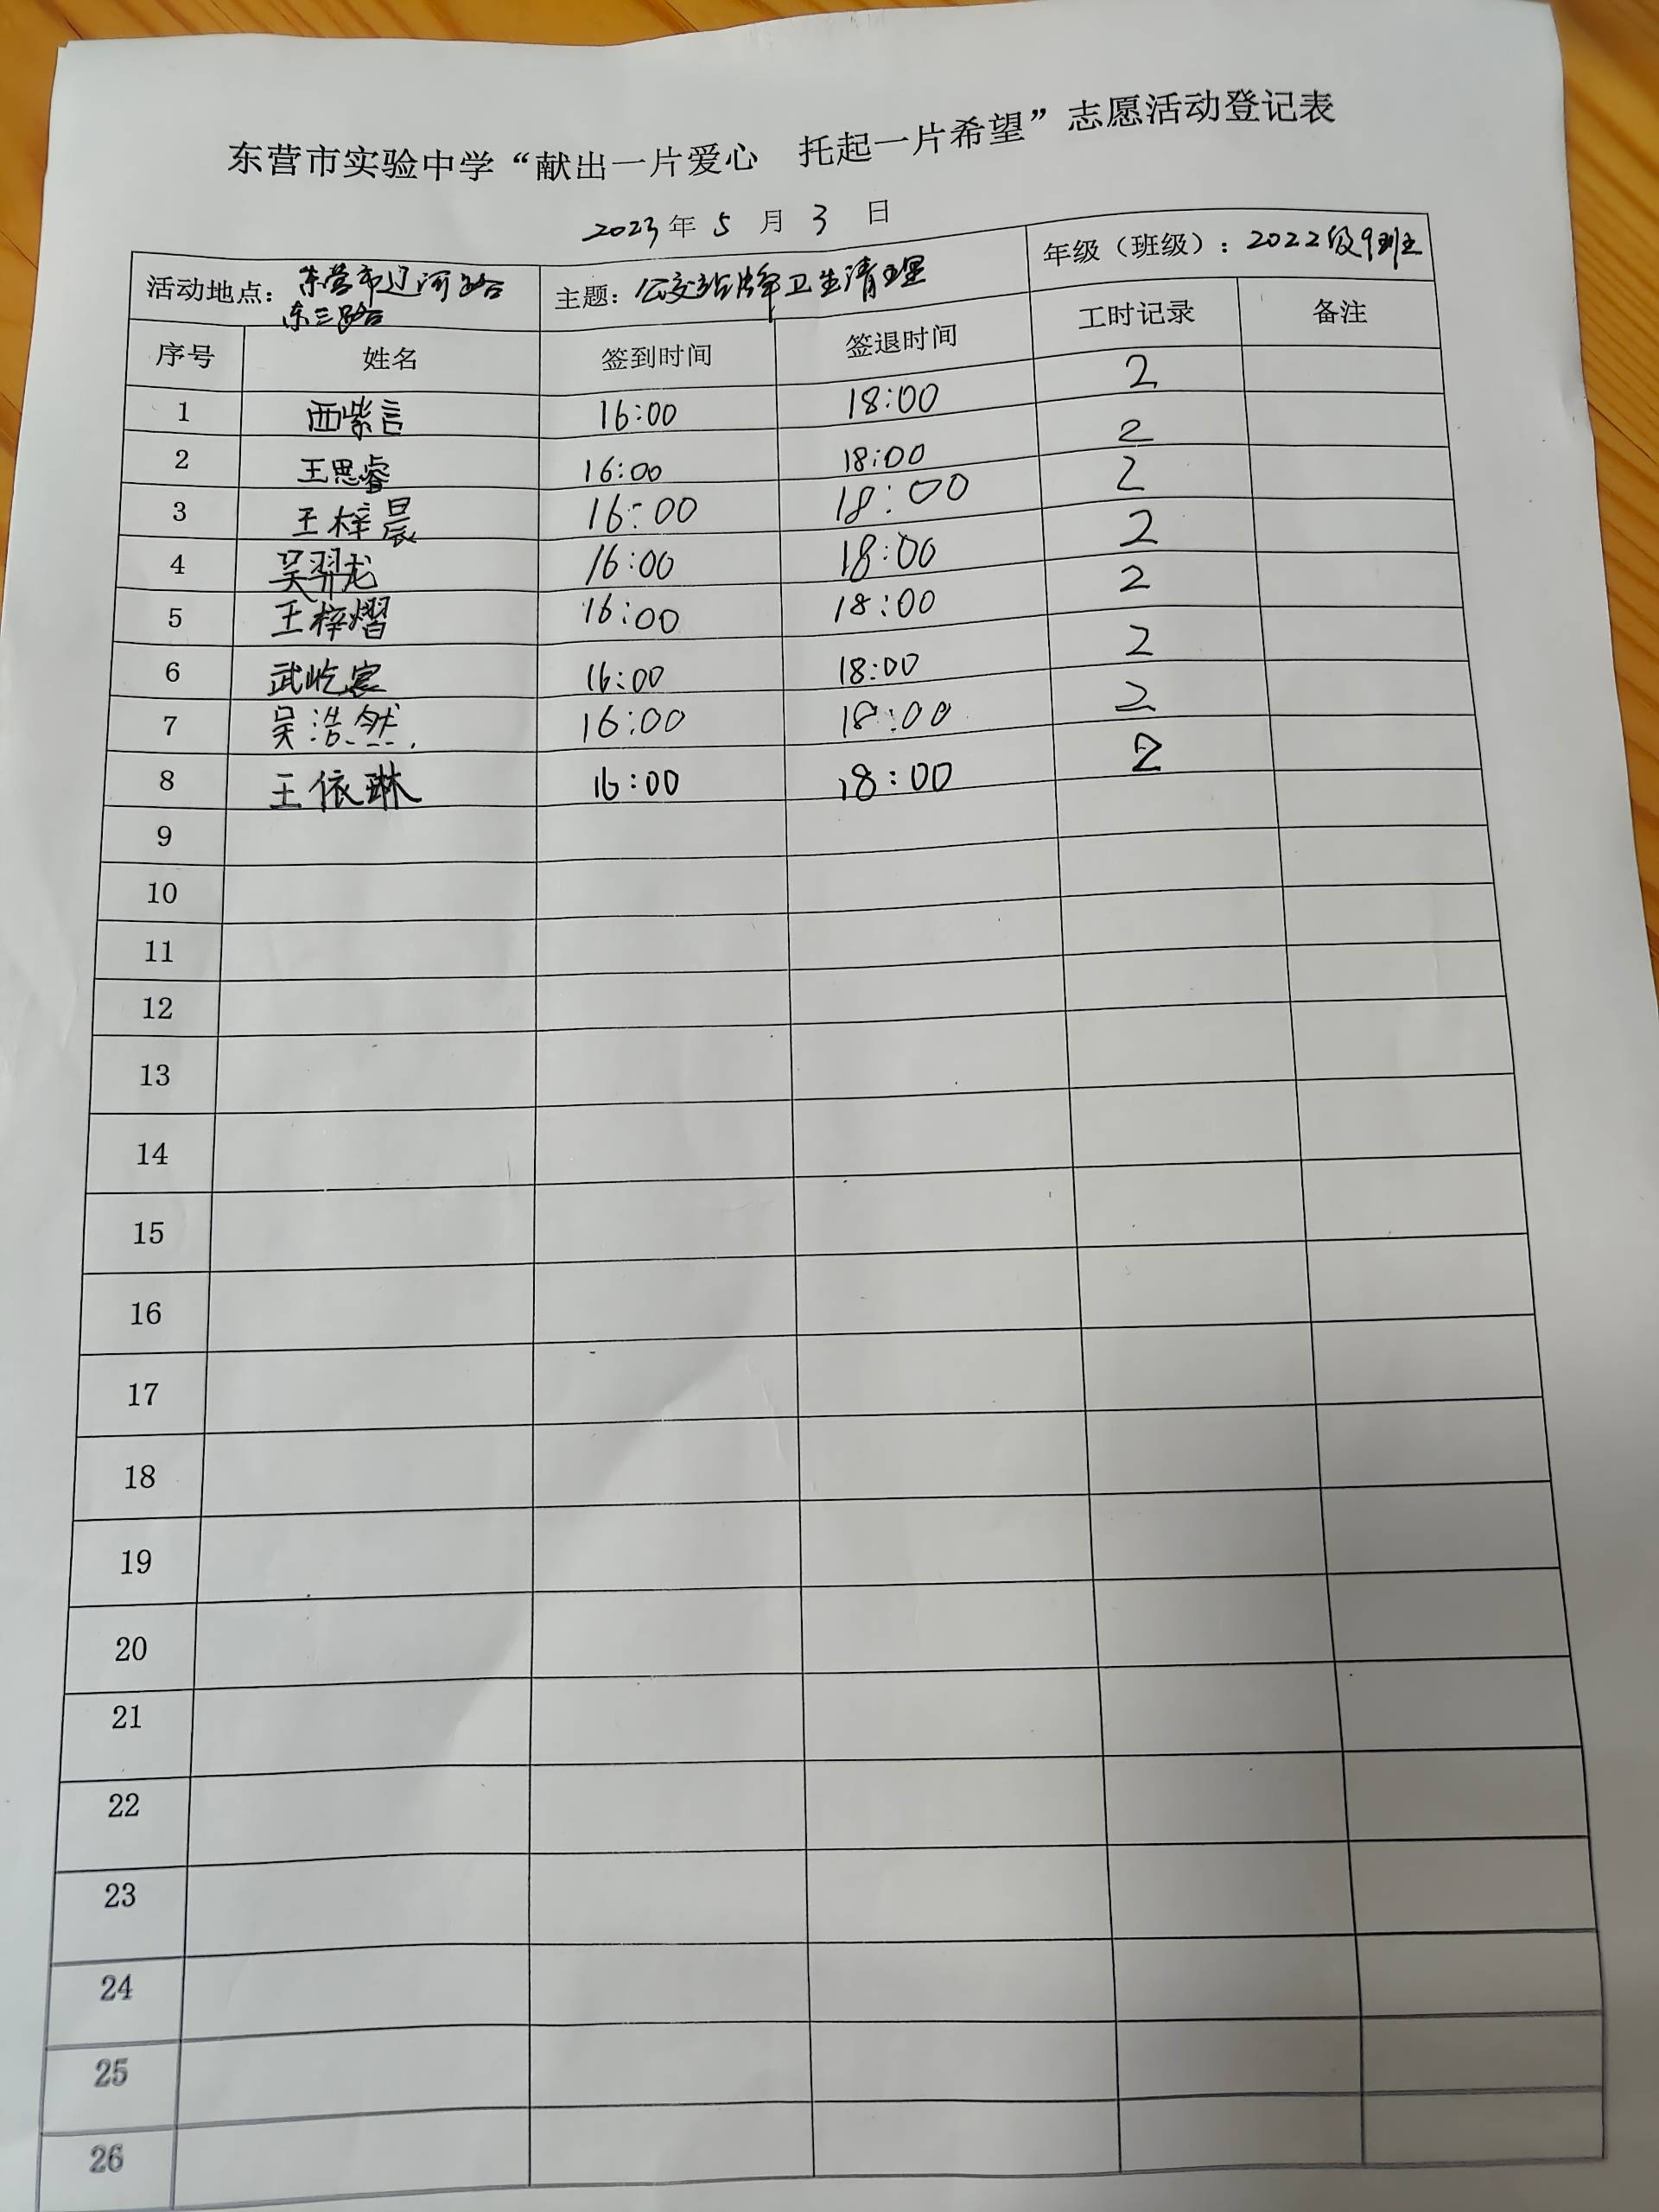 东营市实验中学“献出一片爱心 托起一片希望”志愿活动登记表
2023年 5 月 3 日
活动地点：东营市辽河路 主题：公交站牌卫生清理 年级（班级）：2022级9班
东三路
序号 姓名 签到时间 签退时间 工时记录 备注
1 西紫言 16:00 18:00 2
2 王思睿 16:00 18:00 2
3 王梓晨 16:00 18:00 2
4 吴羿龙 16:00 18:00 2
5 王梓熠 16:00 18:00 2
6 武屹宸 16:00 18:00 2
7 吴浩然 16:00 18:00 2
8 王依琳 16:00 18:00 2
9
10
11
12
13
14
15
16
17
18
19
20
21
22
23
24
25
26